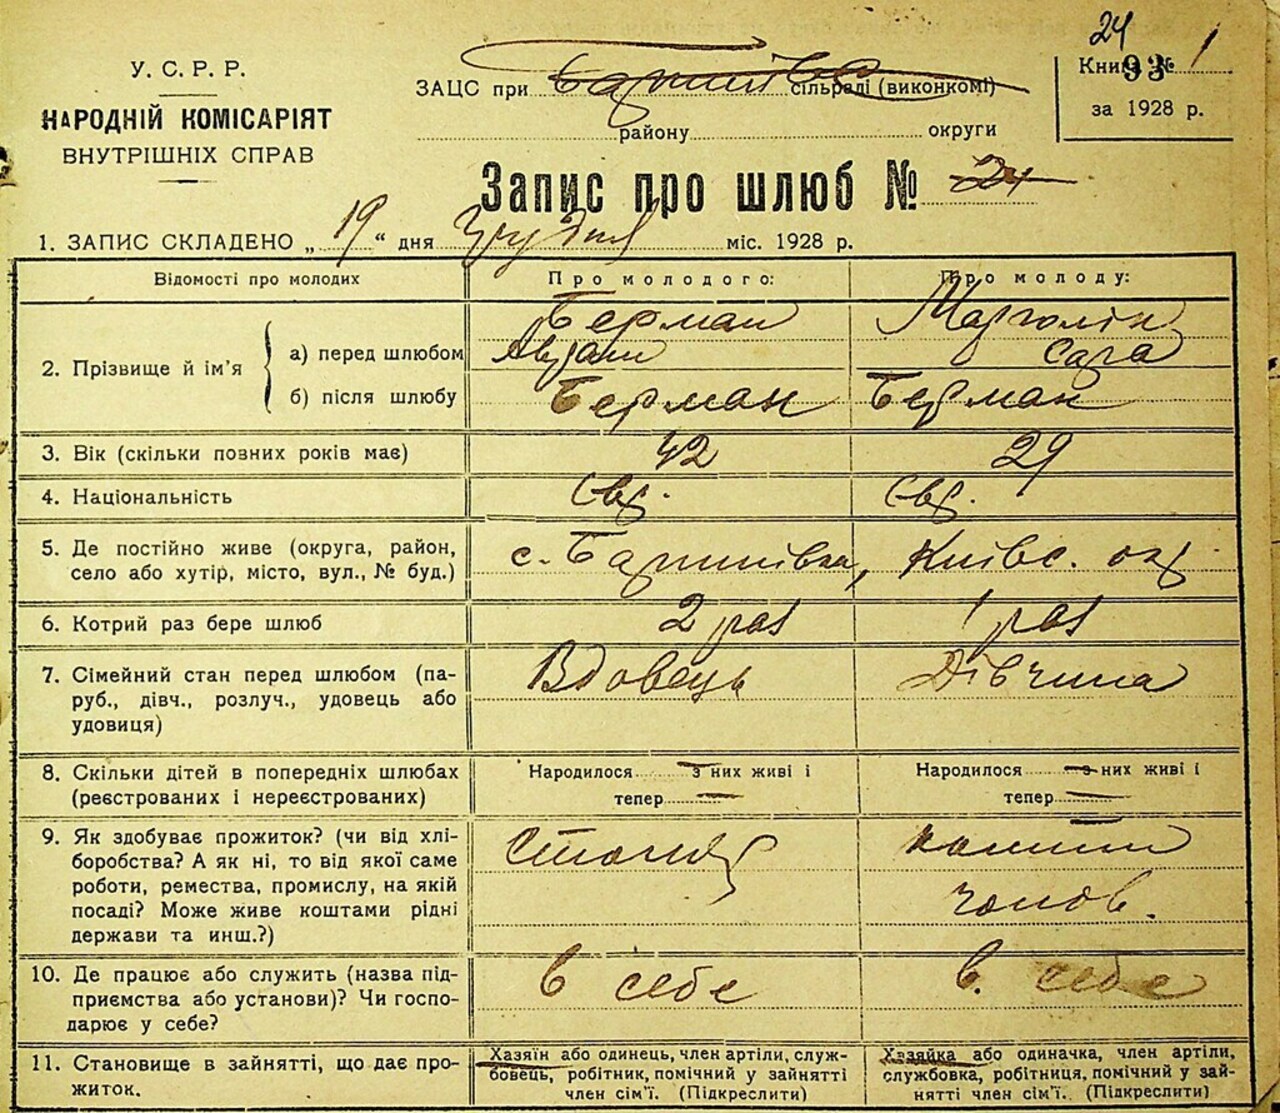 24
У. С. Р. Р.
НАРОДНІЙ КОМІСАРІЯТ
ВНУТРІШНІХ СПРАВ
ЗАЦС при сільраді (виконкомі)
району округи
Книга № 1
93
за 1928 р.
Запис про шлюб № 24
1. ЗАПИС СКЛАДЕНО „ 19 “ дня Грудня міс. 1928 р.
Відомості про молодих Про молодого: Про молоду:
2. Прізвище й ім'я
а) перед шлюбом Берман Марголін
Сара
б) після шлюбу Берман Берман
3. Вік (скільки повних років має) 42 29
4. Національність Євр. Євр.
5. Де постійно живе (округа, район, село або хутір, місто, вул., № буд.) с. Баришівка, Київс. окр
6. Котрий раз бере шлюб 2 раз 1 раз
7. Сімейний стан перед шлюбом (па-
руб., дівч., розлуч., удовець або
удовиця)
Вдовець Дівчина
8. Скільки дітей в попередніх шлюбах
(реєстрованих і нереєстрованих)
Народилося з них живі і
тепер
Народилося з них живі і
тепер
9. Як здобуває прожиток? (чи від хлі-
боробства? А як ні, то від якої саме
роботи, ремества, промислу, на якій
посаді? Може живе коштами рідні
держави та инш.?)
Столяр кошти
чолов.
10. Де працює або служить (назва під-
приємства або установи)? Чи госпо-
дарює у себе?
в себе в. себе
11. Становище в зайнятті, що дає про-
житок.
Хазяїн або одинець, член артіли, служ-
бовець, робітник, помічний у зайнятті
член сім'ї. (Підкреслити)
Хазяйка або одиначка, член артіли,
службовка, робітниця, помічний у зай-
нятті член сім'ї. (Підкреслити)